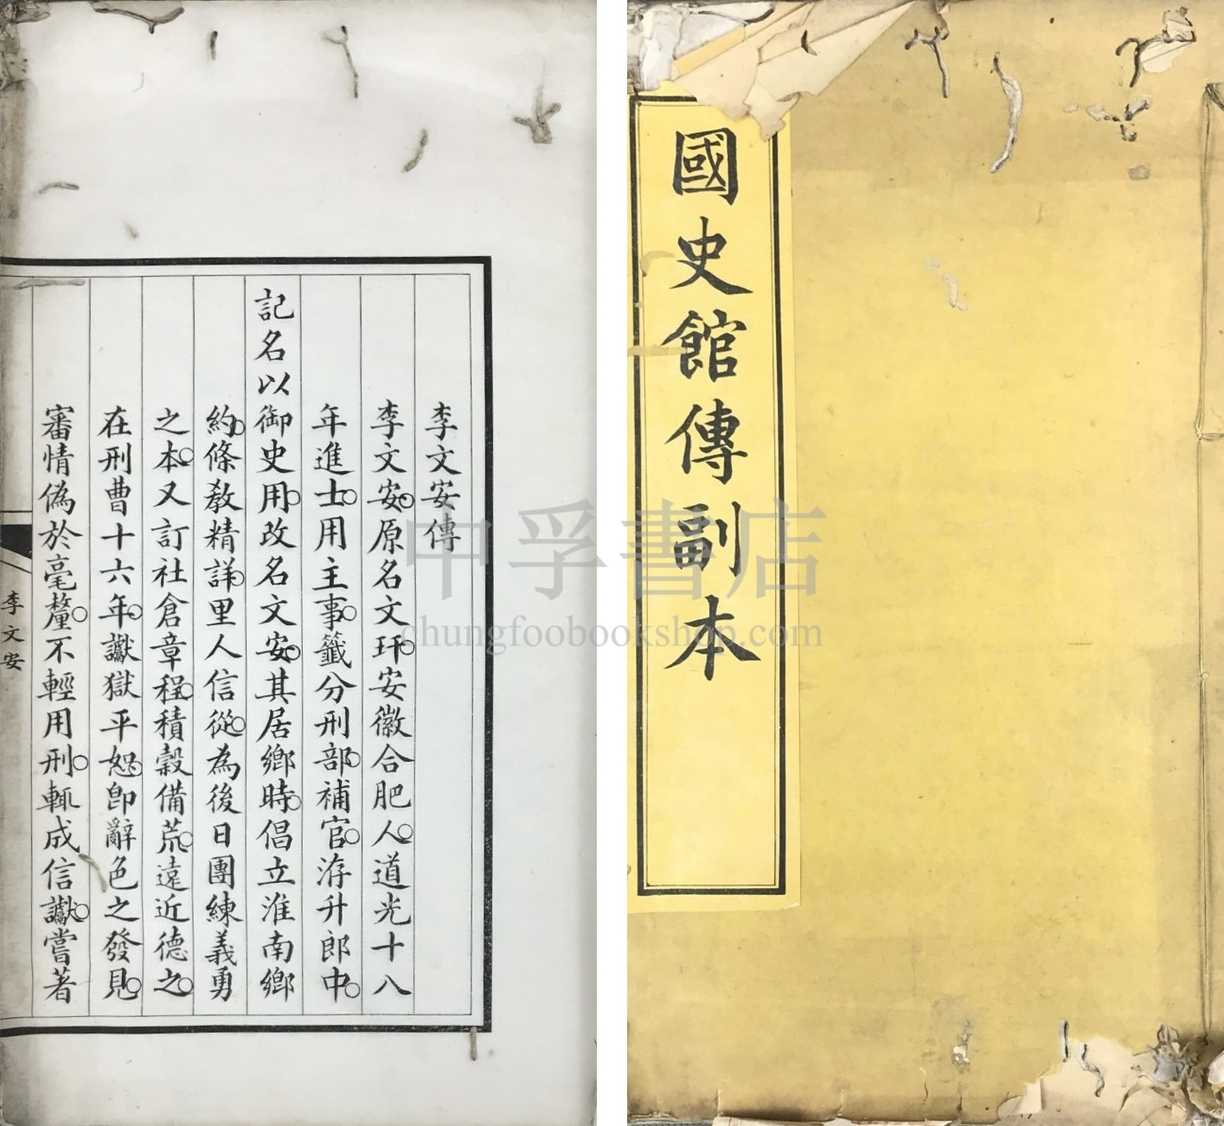 國史館傳副本
李文安傳
李文安原名文玕安徽合肥人道光十八
年進士用主事籤分刑部補官洊升郎中
記名以御史用改名文安其居鄉時倡立淮南鄉
約條教精詳里人信從為後日團練義勇
之本又訂社倉章程積穀備荒遠近德之
在刑曹十六年讞獄平恕卽辭色之發見
審情偽於毫釐不輕用刑輒成信讞嘗著
李文安
中孚書店
chungfoobookshop.com